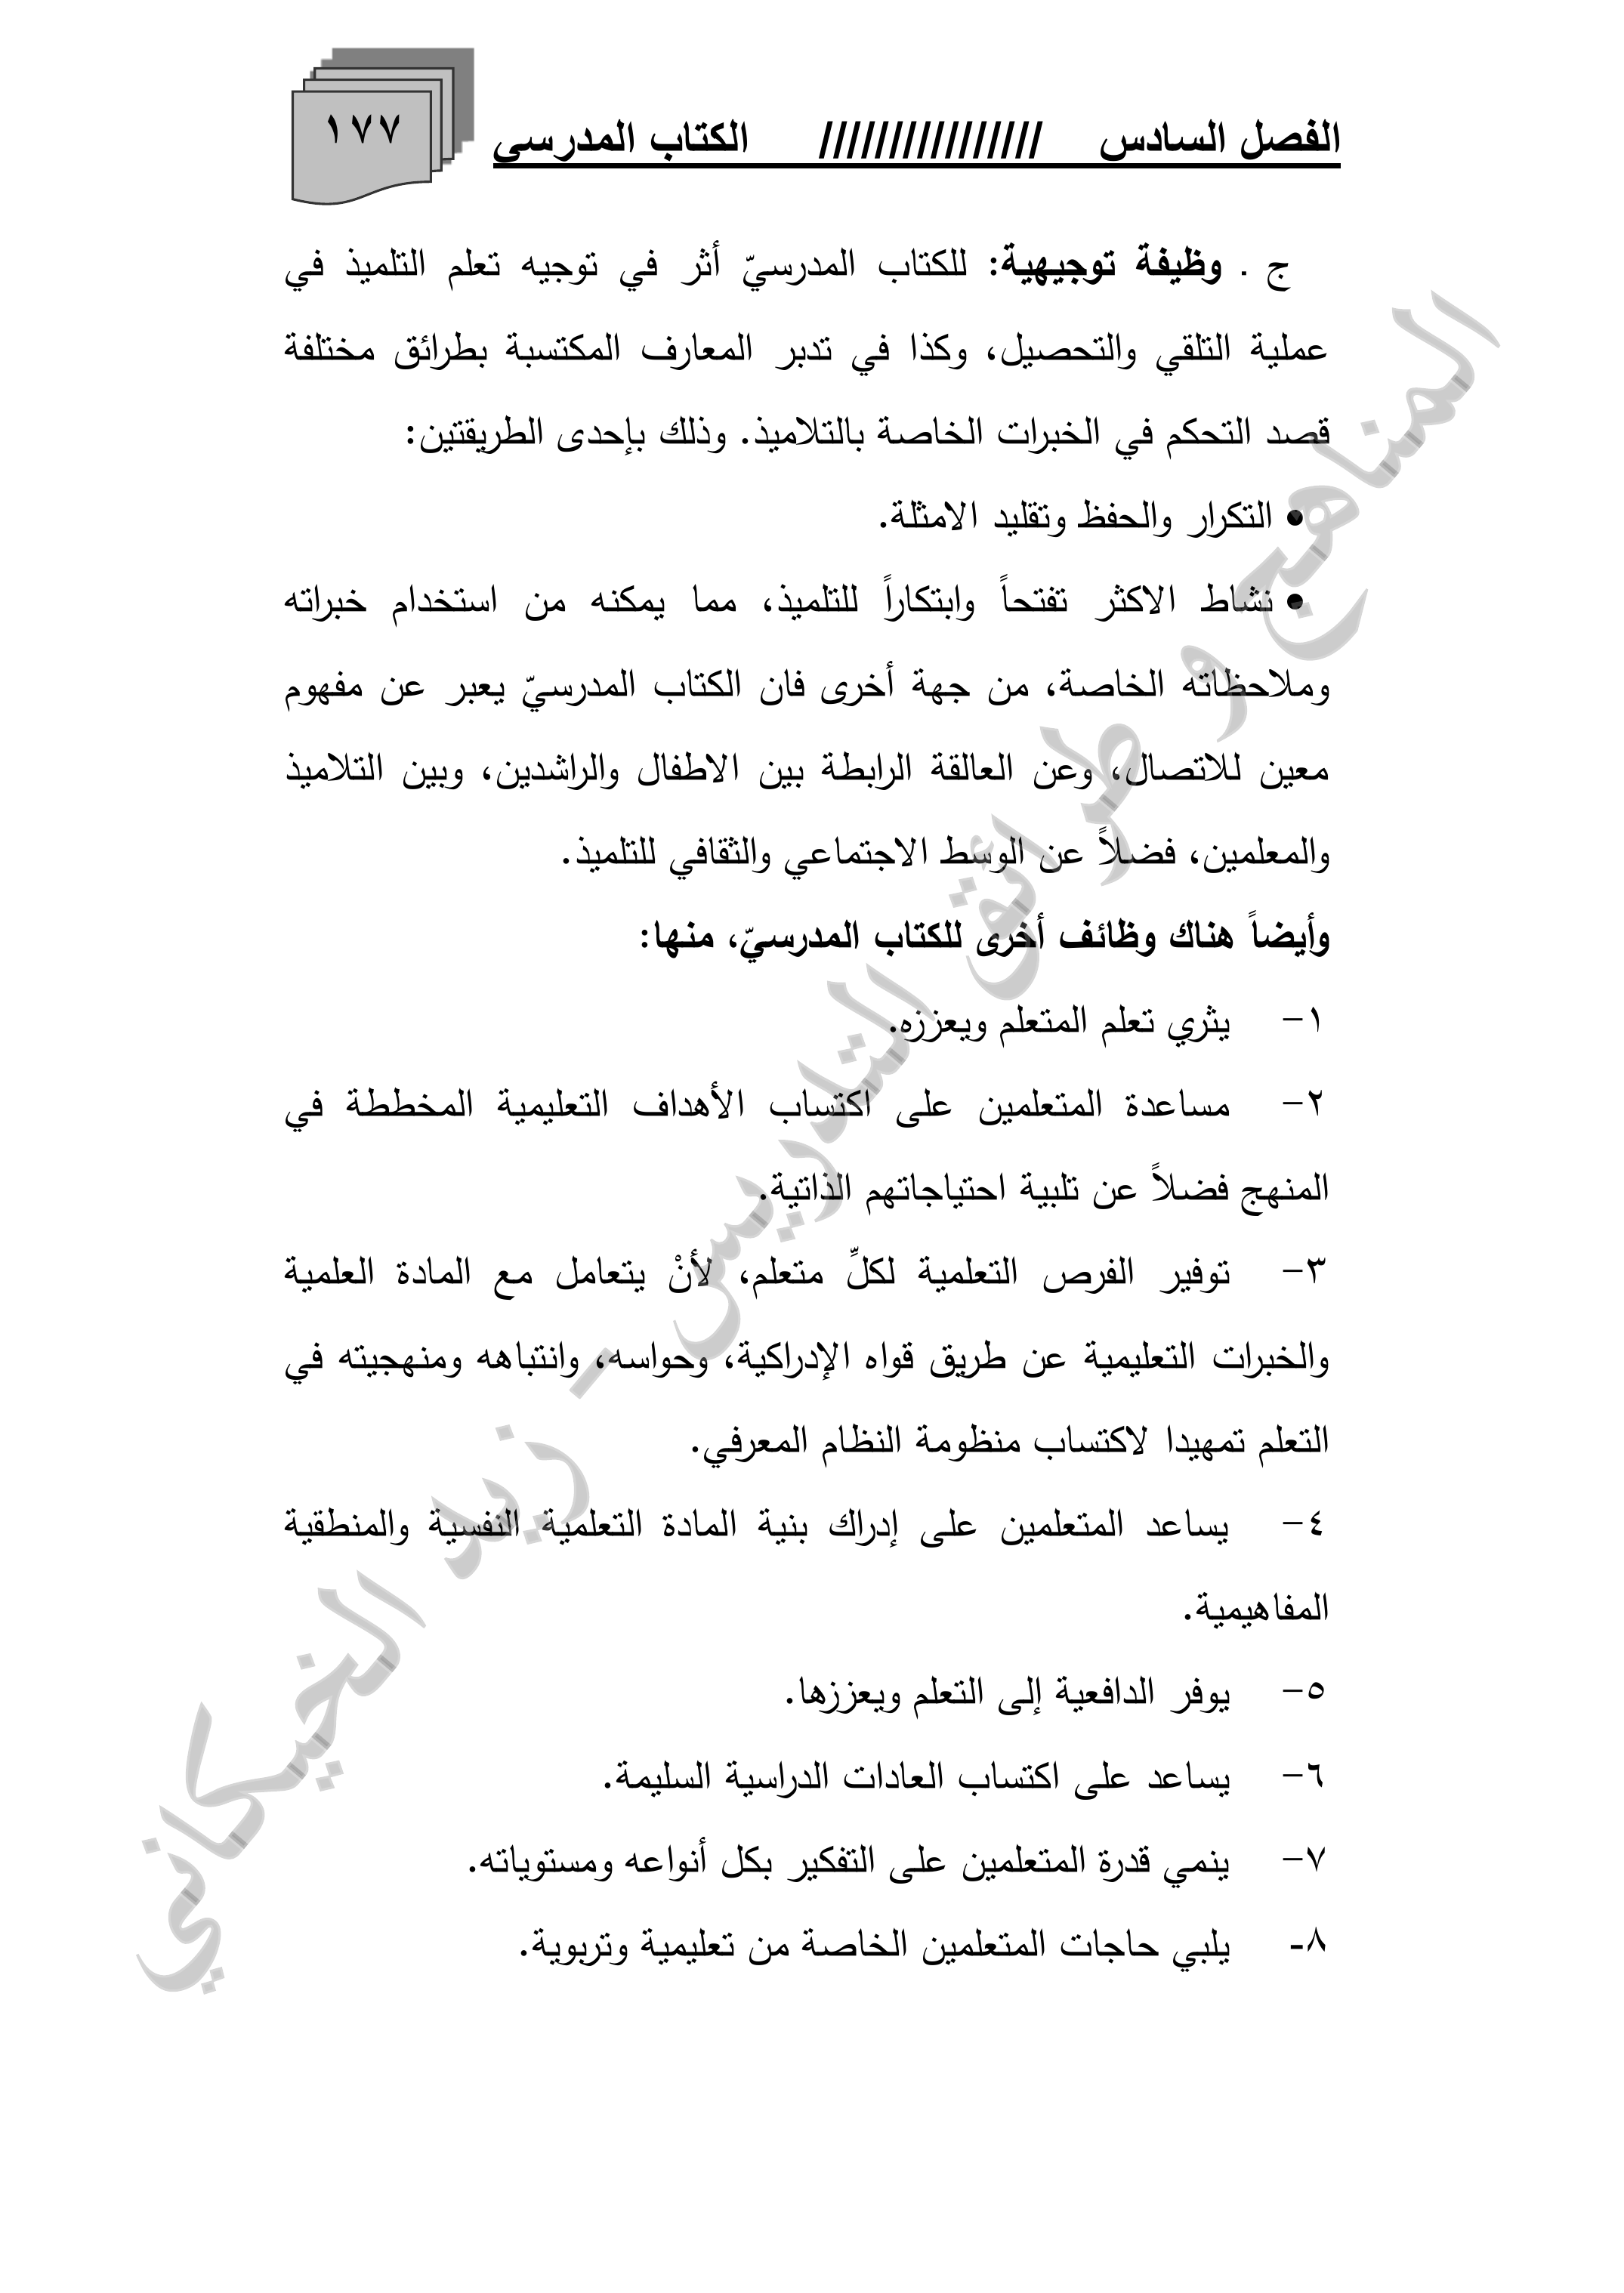 الفصل السادس //////////////// الكتاب المدرسي
١٧٧
ج . وظيفة توجيهية: للكتاب المدرسيّ أثر في توجيه تعلم التلميذ في
عملية التلقي والتحصيل، وكذا في تدبر المعارف المكتسبة بطرائق مختلفة
قصد التحكم في الخبرات الخاصة بالتلاميذ. وذلك بإحدى الطريقتين:
• التكرار والحفظ وتقليد الامثلة.
• نشاط الاكثر تفتحاً وابتكاراً للتلميذ، مما يمكنه من استخدام خبراته
وملاحظاته الخاصة، من جهة أخرى فان الكتاب المدرسيّ يعبر عن مفهوم
معين للاتصال، وعن العالقة الرابطة بين الاطفال والراشدين، وبين التلاميذ
والمعلمين، فضلاً عن الوسط الاجتماعي والثقافي للتلميذ.
وأيضاً هناك وظائف أخرى للكتاب المدرسيّ، منها:
١- يثري تعلم المتعلم ويعززه.
٢- مساعدة المتعلمين على اكتساب الأهداف التعليمية المخططة في
المنهج فضلاً عن تلبية احتياجاتهم الذاتية.
٣- توفير الفرص التعلمية لكلِّ متعلم، لأنْ يتعامل مع المادة العلمية
والخبرات التعليمية عن طريق قواه الإدراكية، وحواسه، وانتباهه ومنهجيته في
التعلم تمهيدا لاكتساب منظومة النظام المعرفي.
٤- يساعد المتعلمين على إدراك بنية المادة التعلمية النفسية والمنطقية
المفاهيمية.
٥- يوفر الدافعية إلى التعلم ويعززها.
٦- يساعد على اكتساب العادات الدراسية السليمة.
٧- ينمي قدرة المتعلمين على التفكير بكل أنواعه ومستوياته.
٨- يلبي حاجات المتعلمين الخاصة من تعليمية وتربوية.
المناهج و طرائق التدريس - زيد الخيكاني